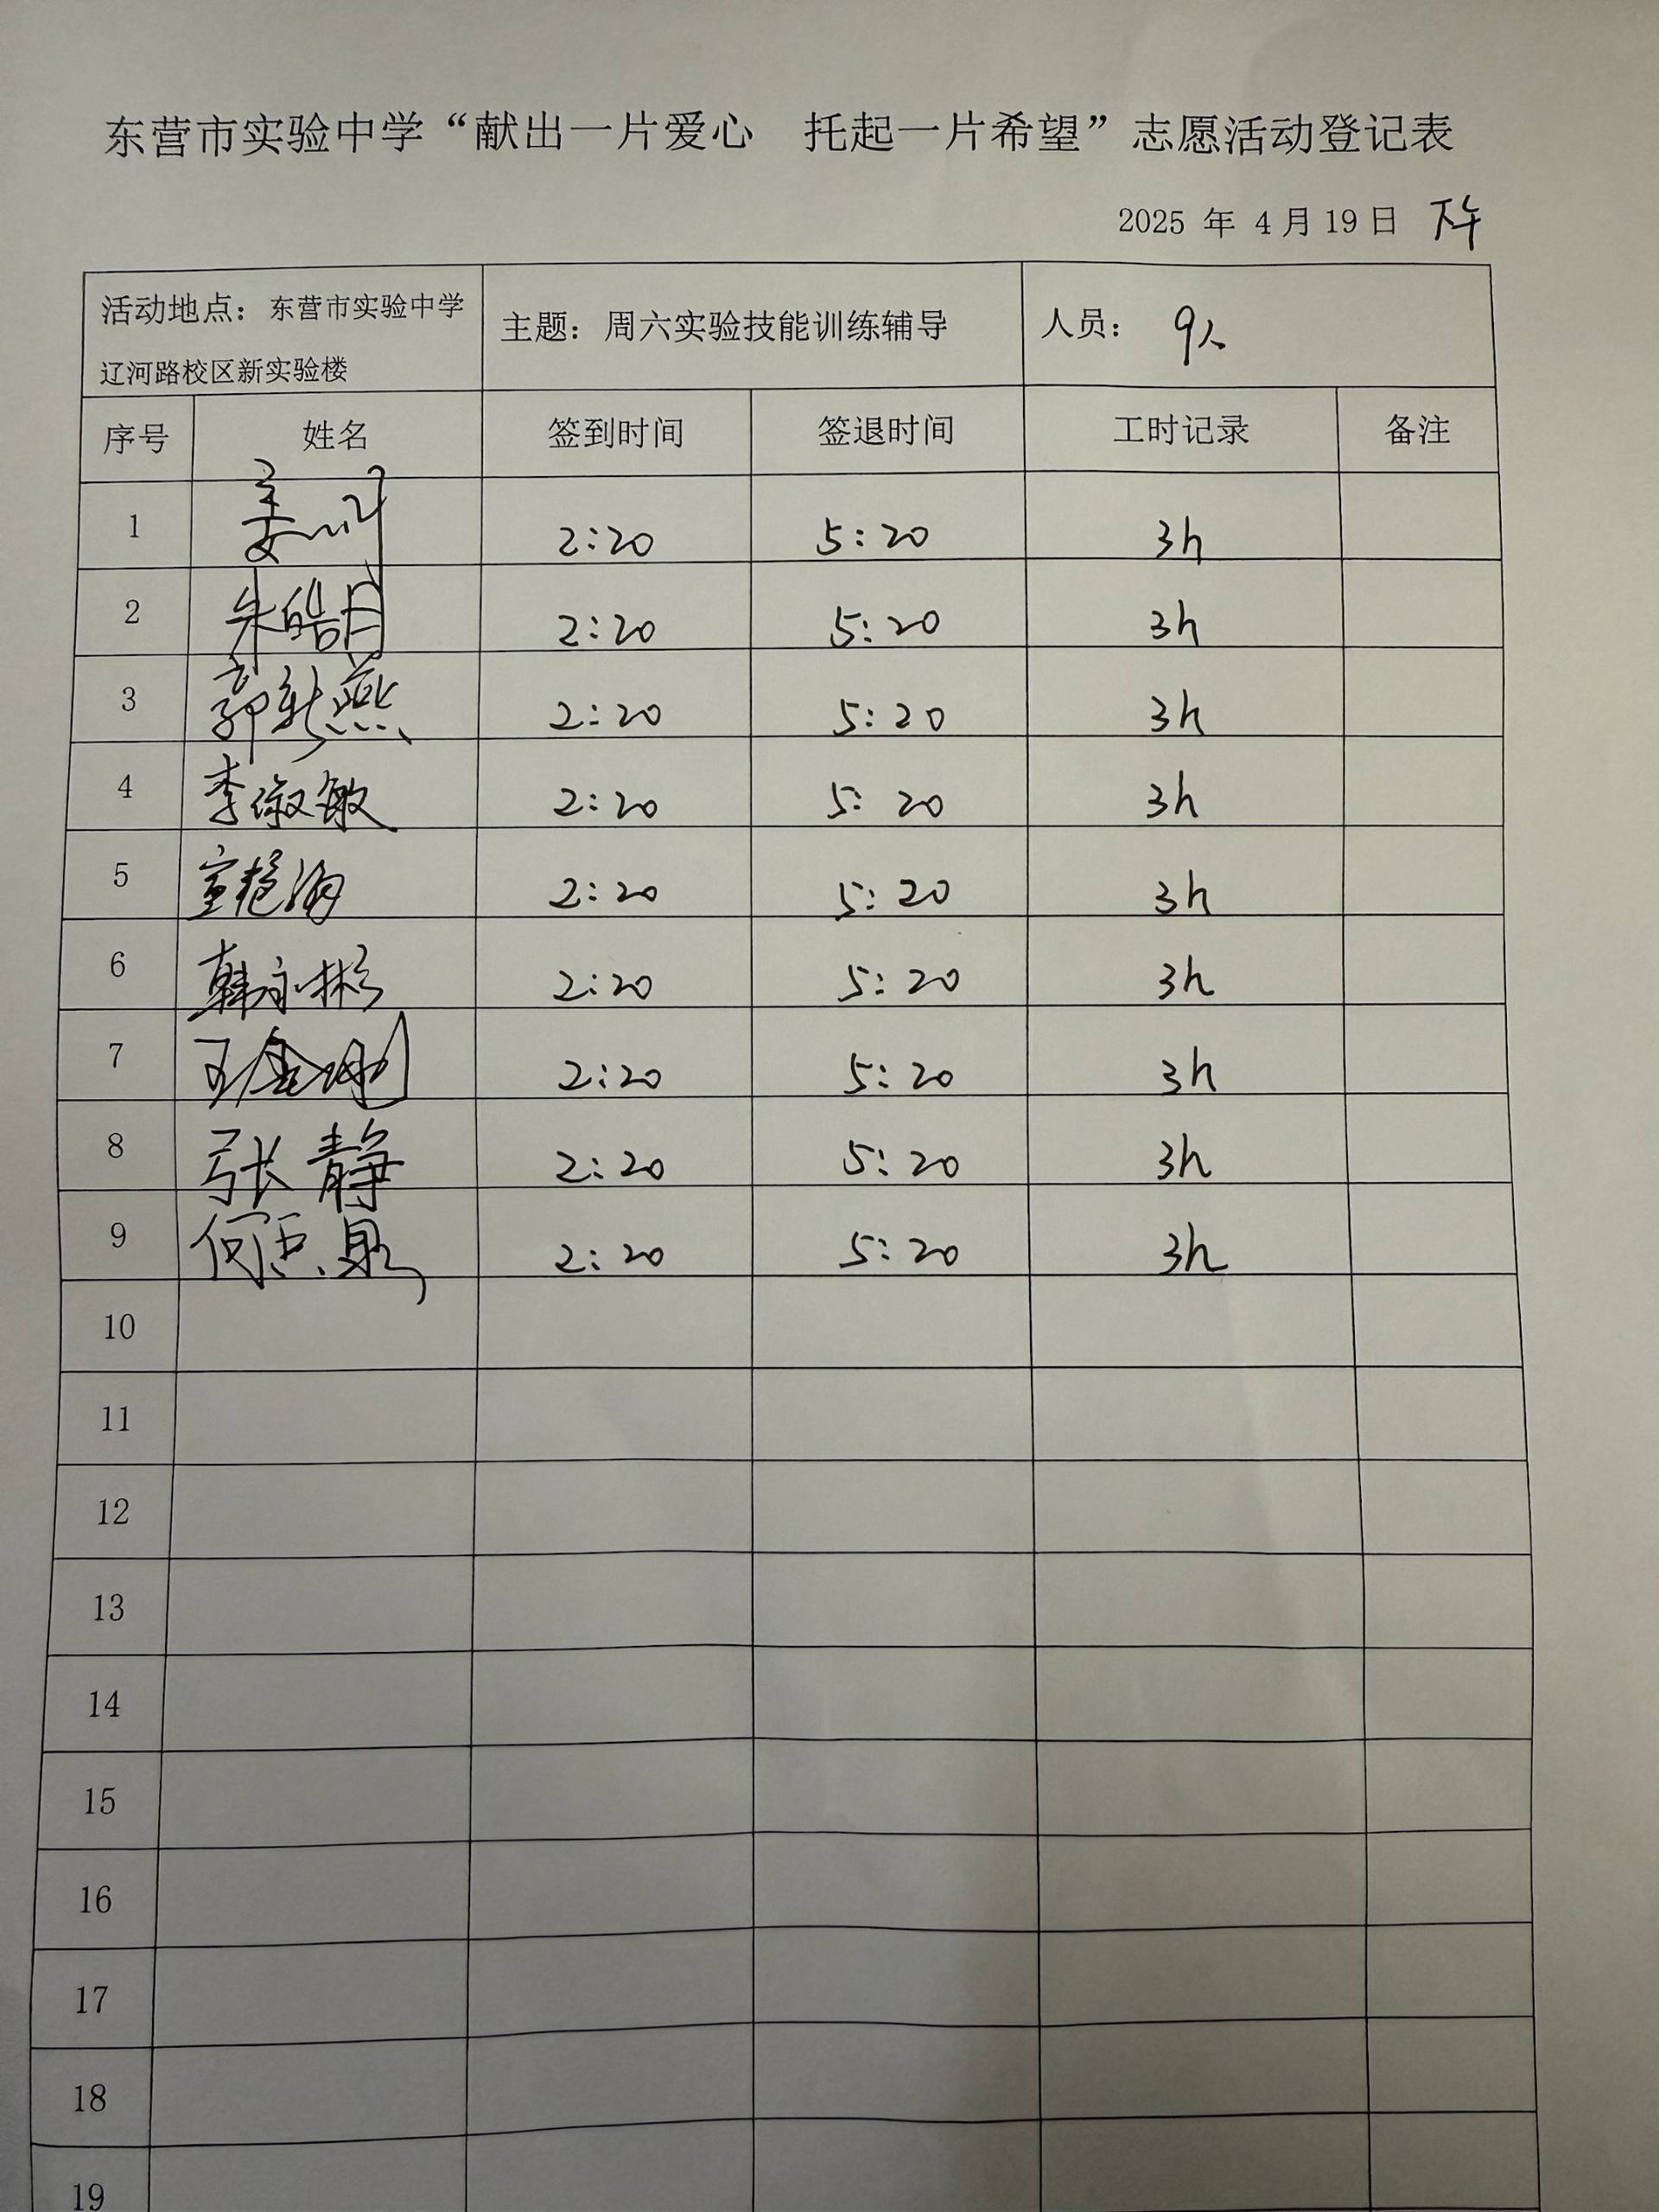 东营市实验中学“献出一片爱心 托起一片希望”志愿活动登记表
2025 年 4 月 19 日 下午
活动地点：东营市实验中学 主题：周六实验技能训练辅导 人员： 9人
辽河路校区新实验楼
序号 姓名 签到时间 签退时间 工时记录 备注
1 姜 2:20 5:20 3h
2 朱皓月 2:20 5:20 3h
3 郭新燕 2:20 5:20 3h
4 李淑敏 2:20 5:20 3h
5 2:20 5:20 3h
6 韩永彬 2:20 5:20 3h
7 王金刚 2:20 5:20 3h
8 张静 2:20 5:20 3h
9 何 泉 2:20 5:20 3h
10
11
12
13
14
15
16
17
18
19